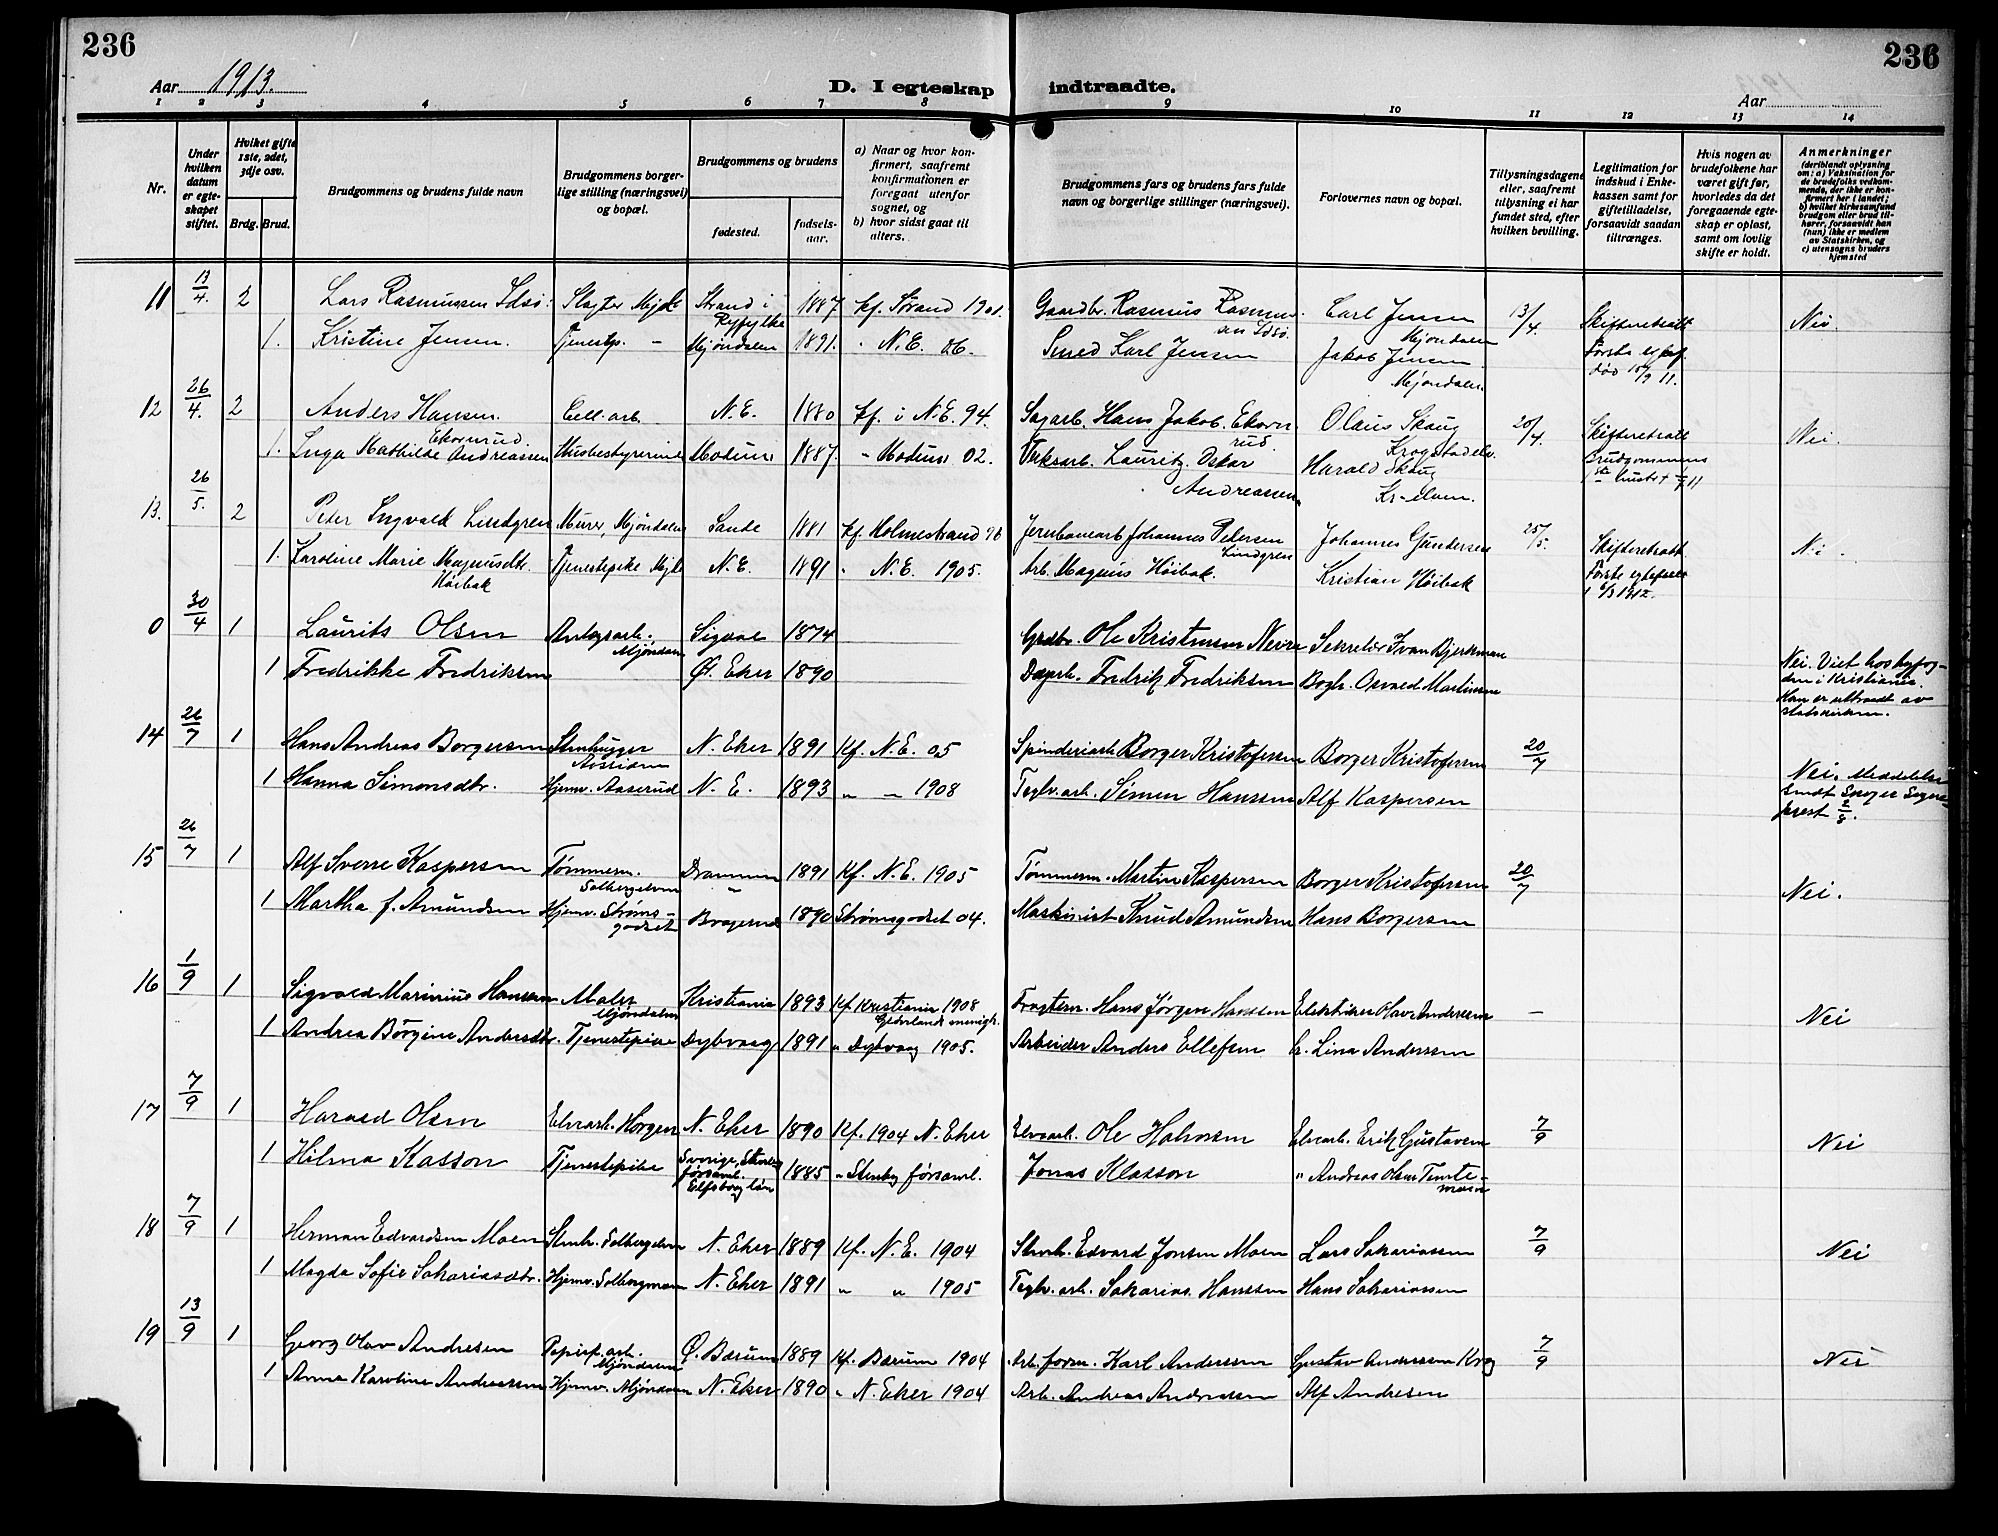 236
236
Aar 1913.
D. I egteskap indtraadte.
Aar
1 2 3 4 5 6 7 8 9 10 11 12 13 14
Nr.
Under hvilken datum er egteskapet stiftet.
Hvilket gifte 1ste, 2det, 3dje osv.
Brdg. Brud.
Brudgommens og brudens fulde navn
Brudgommens borgerlige stilling (næringsvei) og bopæl.
Brudgommens og brudens
fødested.
fødselsaar.
a) Naar og hvor konfirmert, saafremt konfirmationen er foregaat utenfor sognet, og
b) hvor sidst gaat til alters.
Brudgommens fars og brudens fars fulde navn og borgerlige stillinger (næringsvei).
Forlovernes navn og bopæl.
Tillysningsdagene eller, saafremt tillysning ei har fundet sted, efter hvilken bevilling.
Legitimation for indskud i Enkekassen samt for giftetilladelse, forsaavidt saadan tiltrænges.
Hvis nogen av brudefolkene har været gift før, hvorledes da det foregaaende egteskap er opløst, samt om lovlig skifte er holdt.
Anmerkninger
(deriblandt oplysning om: a) Vaksination for de brudefolks vedkommende, der ikke er konfirmert her i landet;
b) hvilket kirkesamfund brudgom eller brud tilhører, forsaavidt han (hun) ikke er medlem av Statskirken, og
c) utensogns bruders hjemsted
11 13/4. 2 Lars Rasmussen Idsø. Slagter Mjdl Strand i Ryfylke 1887 kf. Strand 1901. Gaardbr. Rasmus Rasmussen Idsø. Carl Jensen Mjøndalen 13/4. Skifteretsatt Første egtef. død 15/9 11. Nei.
1. Kristine Jensen. Tjenestp. - Mjøndalen 1891. " N.E. 06. Smed Karl Jensen Jakob Jensen Mjøndalen.
12 26/4. 2 Anders Hansen Ekornrud. Cell. arb. N.E. 1880 kf. i N.E. 94. Sagarb. Hans Jakob. Ekornrud Olaus Skaug Krogstadelv. 20/4. Skifteretsatt Brudgommens 1ste hustr + 11 Nei.
1. Inga Mathilde Andreassen Husbestyrerinde Modum 1887. - Modum 02. Verksarb. Lauritz Oskar Andreassen Harald Skaug Kr-elven.
13. 26/5. 2 Peter Ingvald Lindgren Murer, Mjøndalen Sande 1881 kf. Holmestrand 96 Jernbanearb Johannes Petersen Lindgren Johannes Gundersen 25/5. Skifteretsatt. Første egtefælle Nei.
1. Karoline Marie Magnusdtr. Høibak Tjenestepike Mjdl N.E. 1891 " N.E. 1905. Arb. Magnus Høibak. Kristian Høibak
0 30/4 1 Laurits Olsen Anlegsarb. Mjøndalen Sigdal 1874 Grdbr. Ole Kristensen Nevre Sekretær Ivan Bjerkman
1 Fredrikke Fredriksen Ø. Eker 1890 Dagarb. Fredrik Fredriksen Bogh. Osvald Martinsen Nei. Viet hos byfogden i Kristiania. Han er uttraadt av statskirken.
14 26/7 1 Hans Andreas Borgersen Stenhugger Aassiden N. Eker 1891 Kf. N.E. 05 Spinderiarb Borger Kristofersen Borger Kristofersen 20/7
1 Hanna Simonsdtr. Hjemv. Aaserud N. E. 1893 " " 1908 Teglv. arb. Simen Hanssen Alf Kaspersen Nei. Meddelelse sendt Sogneprest 2/8.
15 26/7 1 Alf Sverre Kaspersen Tømmerm. Solbergelven Drammen 1891 Kf. N.E. 1905 Tømmerm. Martin Kaspersen Borger Kristofersen 20/7 Nei.
1 Martha f. Amundsen Hjemv. Strømsgodset Bragernes 1890 Strømsgodset 04. Maskinist Knud Amundsen Hans Borgersen
16 1/9 1 Sigvald Marinius Hansen Maler Mjøndalen Kristiania 1893 Kf. Kristiania 1908 Hans Jørgen Hanssen Elektriker Olav Anderssen - Nei
1 Andrea Børgine Andersdtr. Tjenestepike Dybvaag 1891 " Dybvaag 1905. Arbeider Anders Ellefsen Lina Anderssen
17 7/9 1 Harald Olsen Elvearb. Horgen N. Eker 1890 Kf. 1904 N. Eker Elvearb. Ole Halvorsen Elvearb. Erik Gustavsen 7/9 Nei
1 Hilma Klasson Tjenestepike Sverige, församl. Elfsborg län 1885 " Stenby församl. Jonas Klasson " Andreas Olsen
18 7/9 1 Herman Edvardsen Moen Stenh. Solbergelven N. Eker 1889 Kf. N.E. 1904 Stenh. Edvard Jonsen Moen Lars Sakariassen 7/9 Nei
1 Magda Sofie Sakariasdtr. Hjemv. Solbergmoen N. Eker 1891 " " 1905 Teglv. arb. Sakarias Hanssen Hans Sakariassen
19 13/9 1 Georg Olav Andresen Papirf. arb. Mjøndalen Ø. Bærum 1889 Kf. Bærum 1904 Arb. form. Karl Anderssen Gustav Anderssen Krog 7/9 Nei
1 Anna Karoline Andreassen Hjemv. Mjøndalen N. Eker 1890 " N. Eker 1904 Arb. Andreas Andreassen Alf Andresen